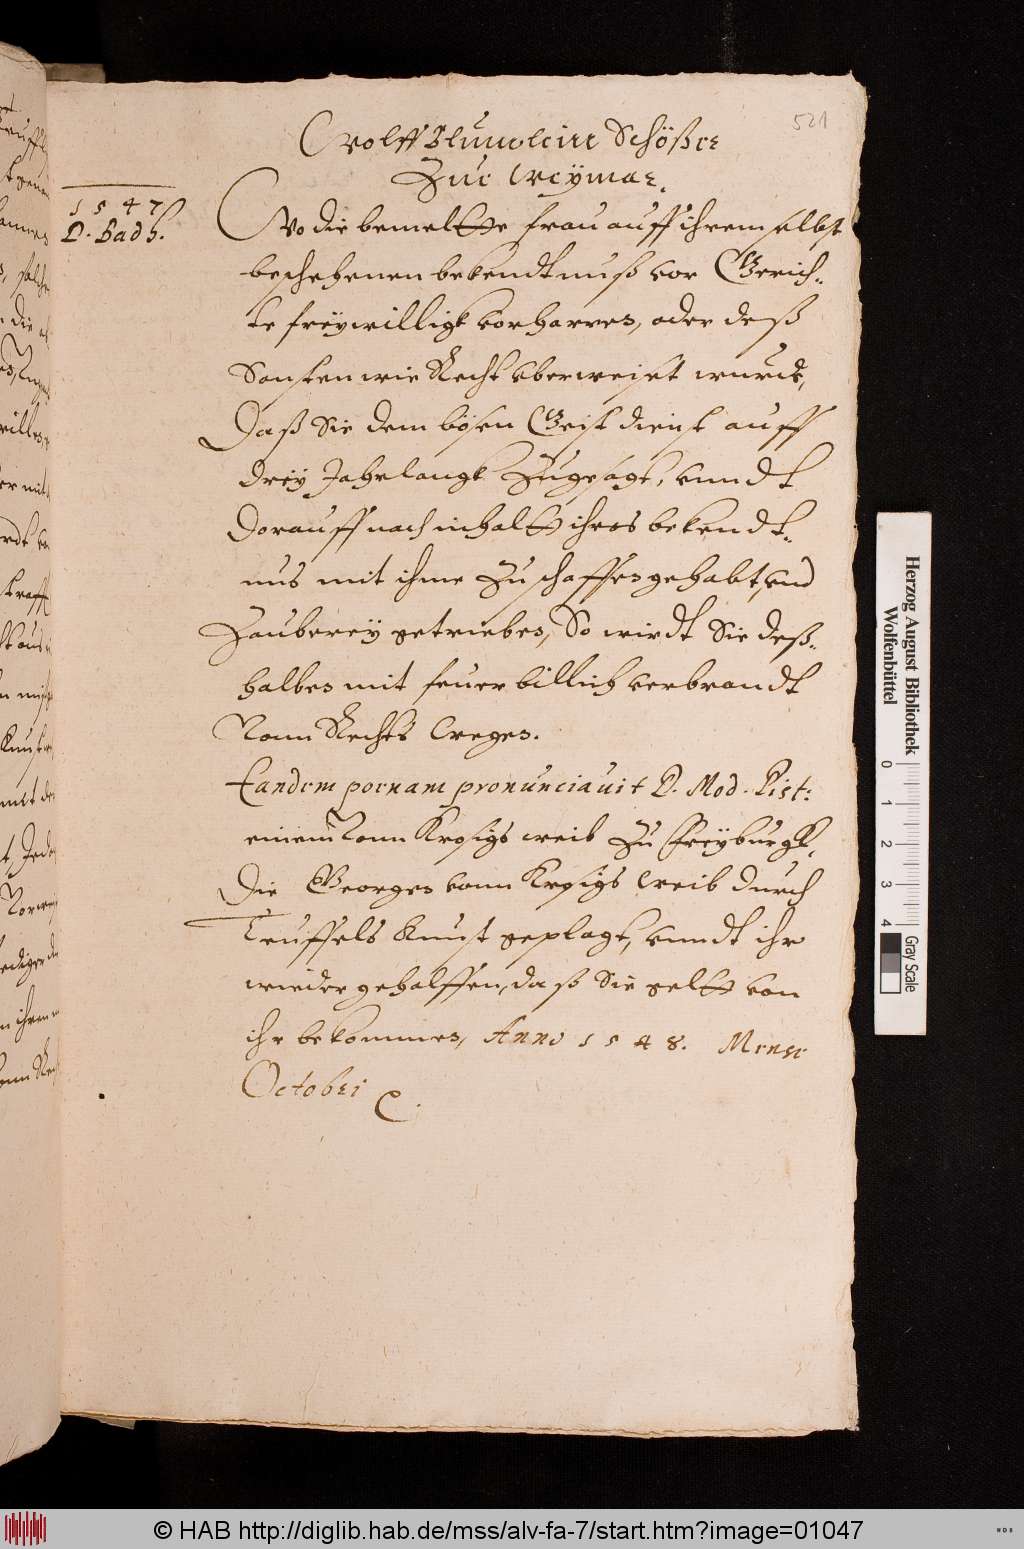 521
Wolff Blumlein Schößer
Zue Weymar.
1547
D. Badh.
Wo die bemeltte frau auff ihrem selbst
beschehenen bekendtnuß vor Gerich-
te freywilligk vorharren, oder deß
Sonsten wie Recht vberweiset wurde,
Daß Sie dem bösen Geist dienst auff
drey Jahrlangk Zugesagt, vnndt
dorauff nach inhaltt ihres bekendt-
nus mit ihme Zuschaffen gehabt, vnd
Zauberey getrieben, So wirdt Sie deß-
halben mit feuer billich verbrandt
Vonn Rechts Weges.
Eandem poenam pronunciauit D. Mod. Pist:
einem Vonn Krosigs weib zu Freyburgk,
Die Georgen vonn Krosigs Weib durch
Teuffels Kunst geplagt, vnndt ihr
wieder geholffen, daß Sie geltt von
ihr bekommen, Anno 1548. Mense
Octobri
Herzog August Bibliothek
Wolfenbüttel
0 1 2 3 4
Gray Scale
© HAB http://diglib.hab.de/mss/alv-fa-7/start.htm?image=01047